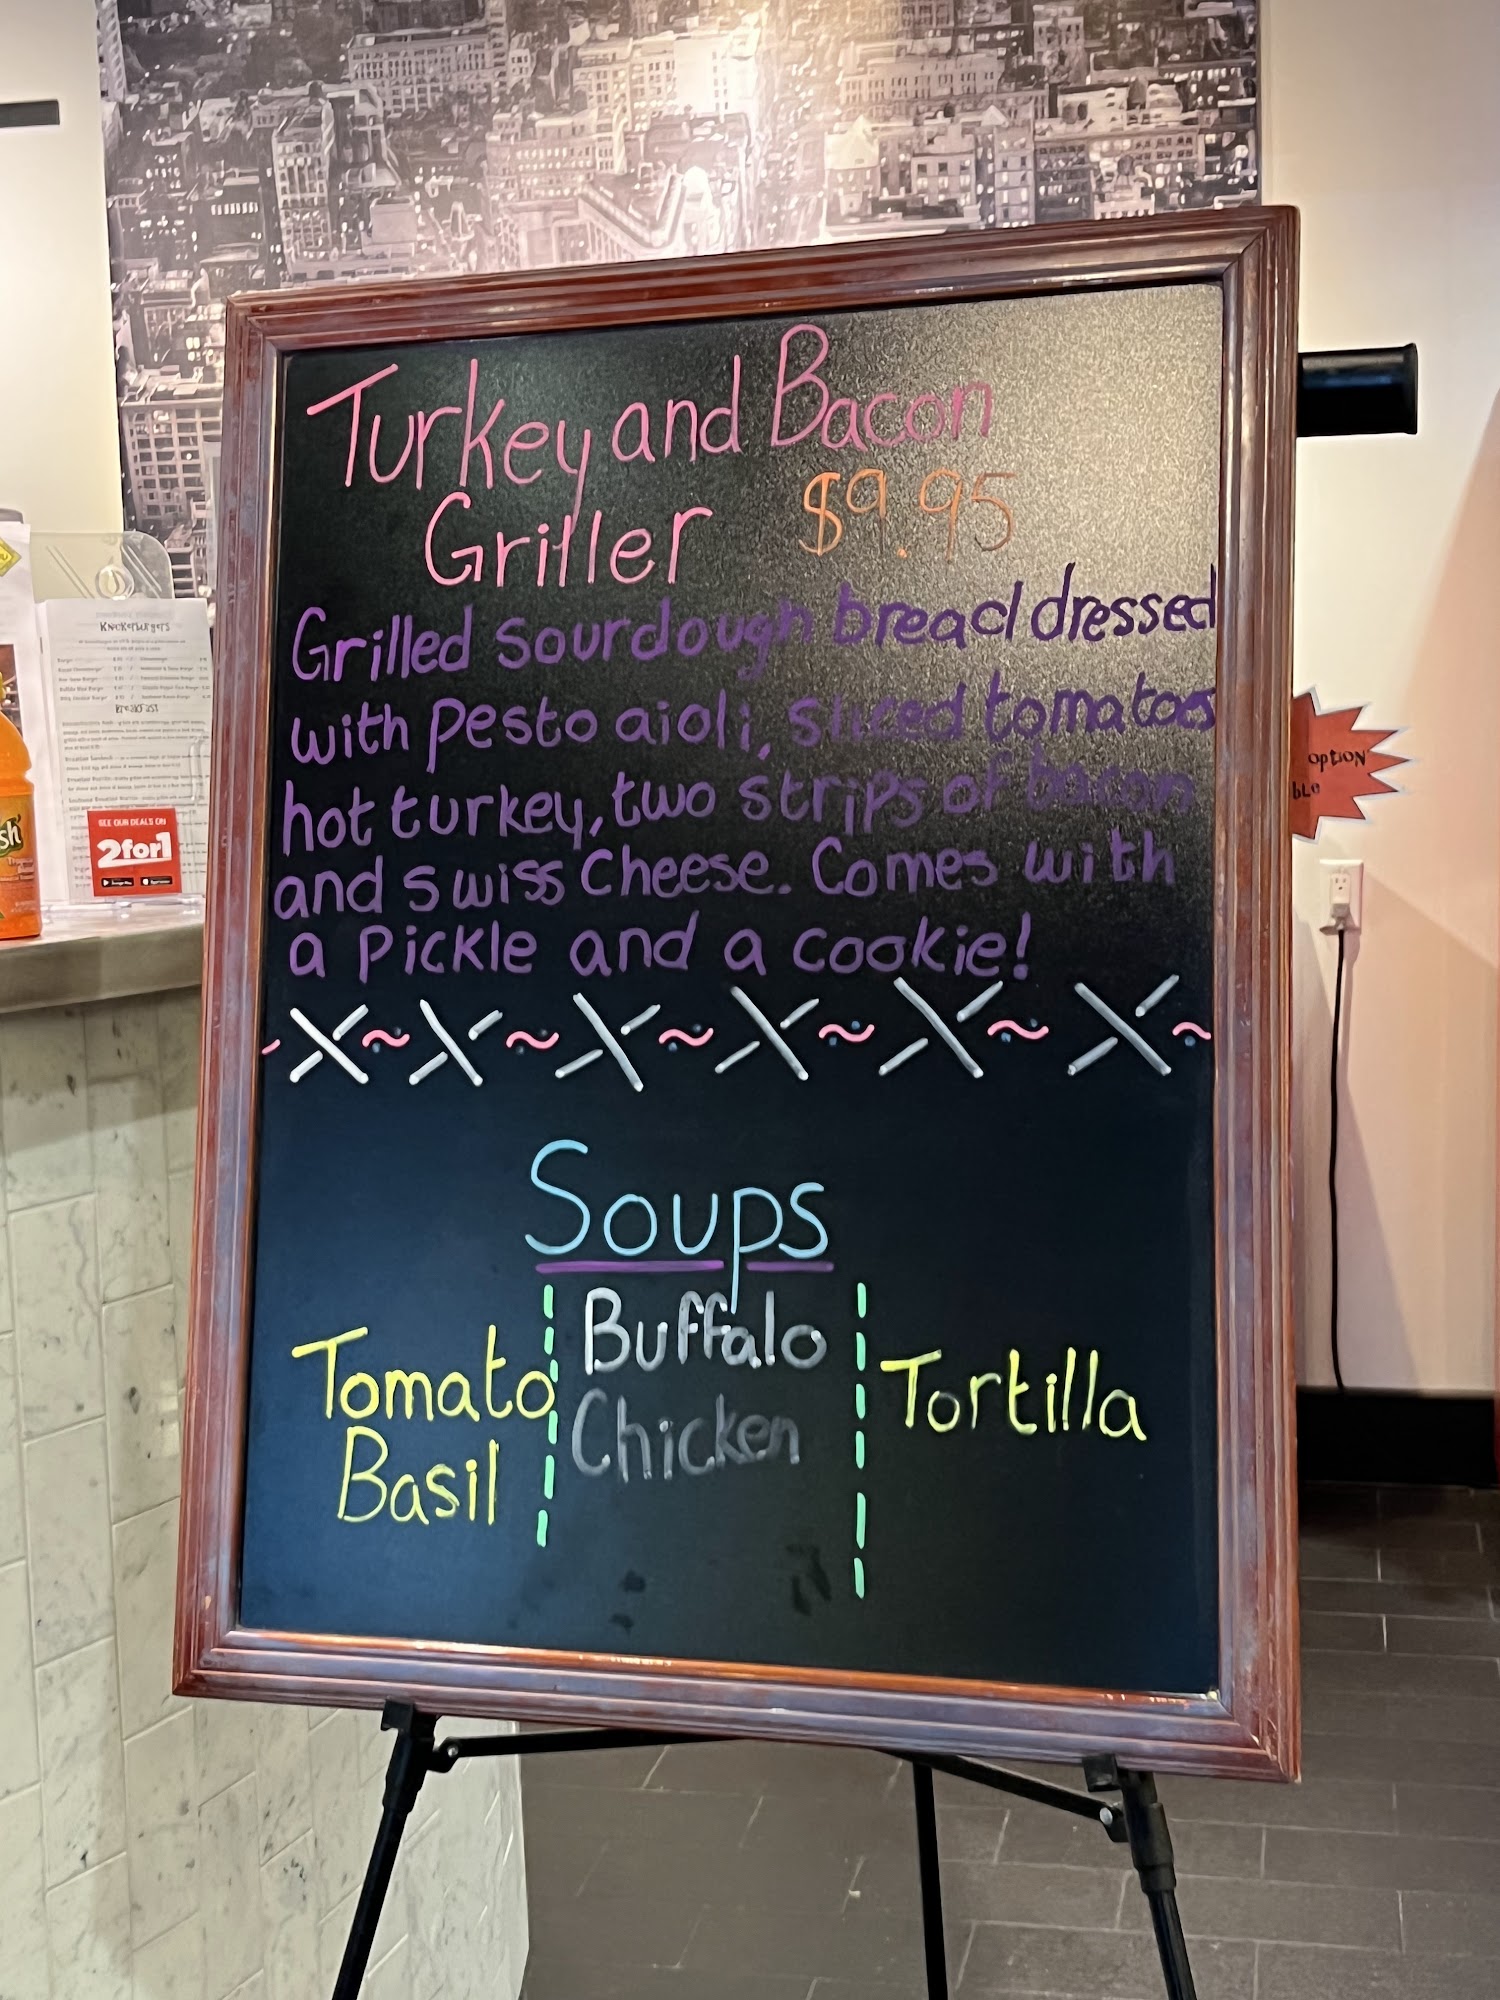 Turkey and Bacon
Griller $9.95
Grilled sourdough bread dressed
with pesto aioli, sliced tomatoes
hot turkey, two strips of bacon
and swiss cheese. Comes with
a pickle and a cookie!
Soups
Tomato
Basil
Buffalo
Chicken
Tortilla
Knickerburgers
Breakfast
SEE OUR DEALS ON
2for1
option